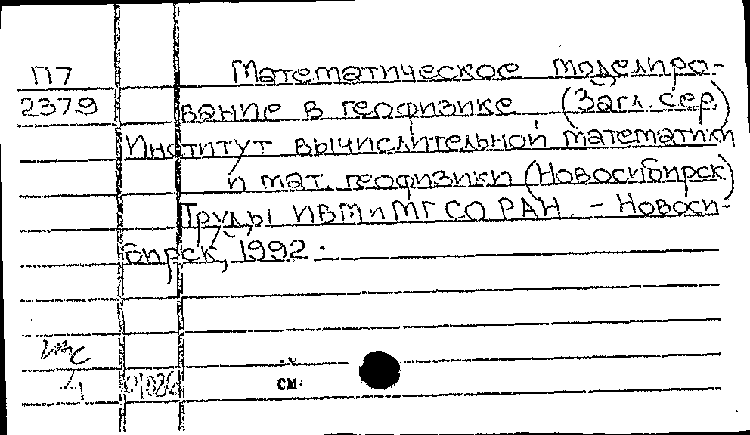 П7 Математическое моделиро-
2379 вание в геофизике (Загл. сер.)
Институт вычислительной математики
и мат. геофизики (Новосибирск)
Труды ИВМиМГ СО РАН. - Новоси-
бирск, 1992.
см.